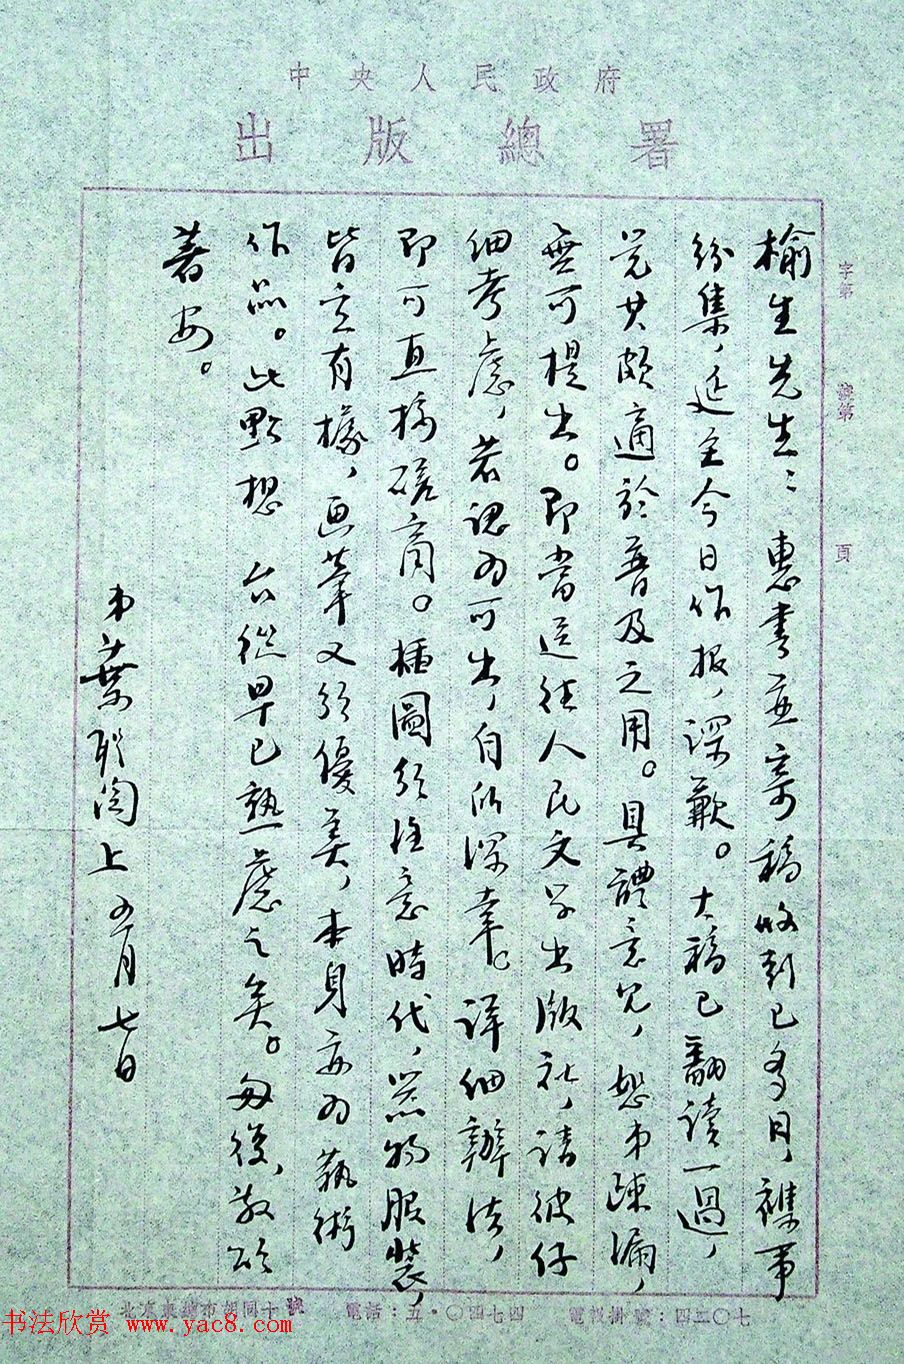 中央人民政府
出版總署
字第　號第　頁
榆生先生：惠書並寄稿收到已多日，襍事
紛集，延至今日作报，深歉。大稿已翻读一過，
覺其頗適於普及之用。具體意見，恕弟疎漏，
無可提出。即當送往人民文学出版社，请彼仔
细考慮，若認为可出，自所深幸。详细辦法，
即可直接磋商。插圖须注意時代，器物服裝，
皆立有據，画筆又须優美，本身亦为藝術
作品。此點想　台從早已熟慮之矣。匆復，敬頌
著安。
弟葉聖陶上　五月七日
電話：五·〇四七四　電報掛號：四二〇七
书法欣赏 www.yac8.com